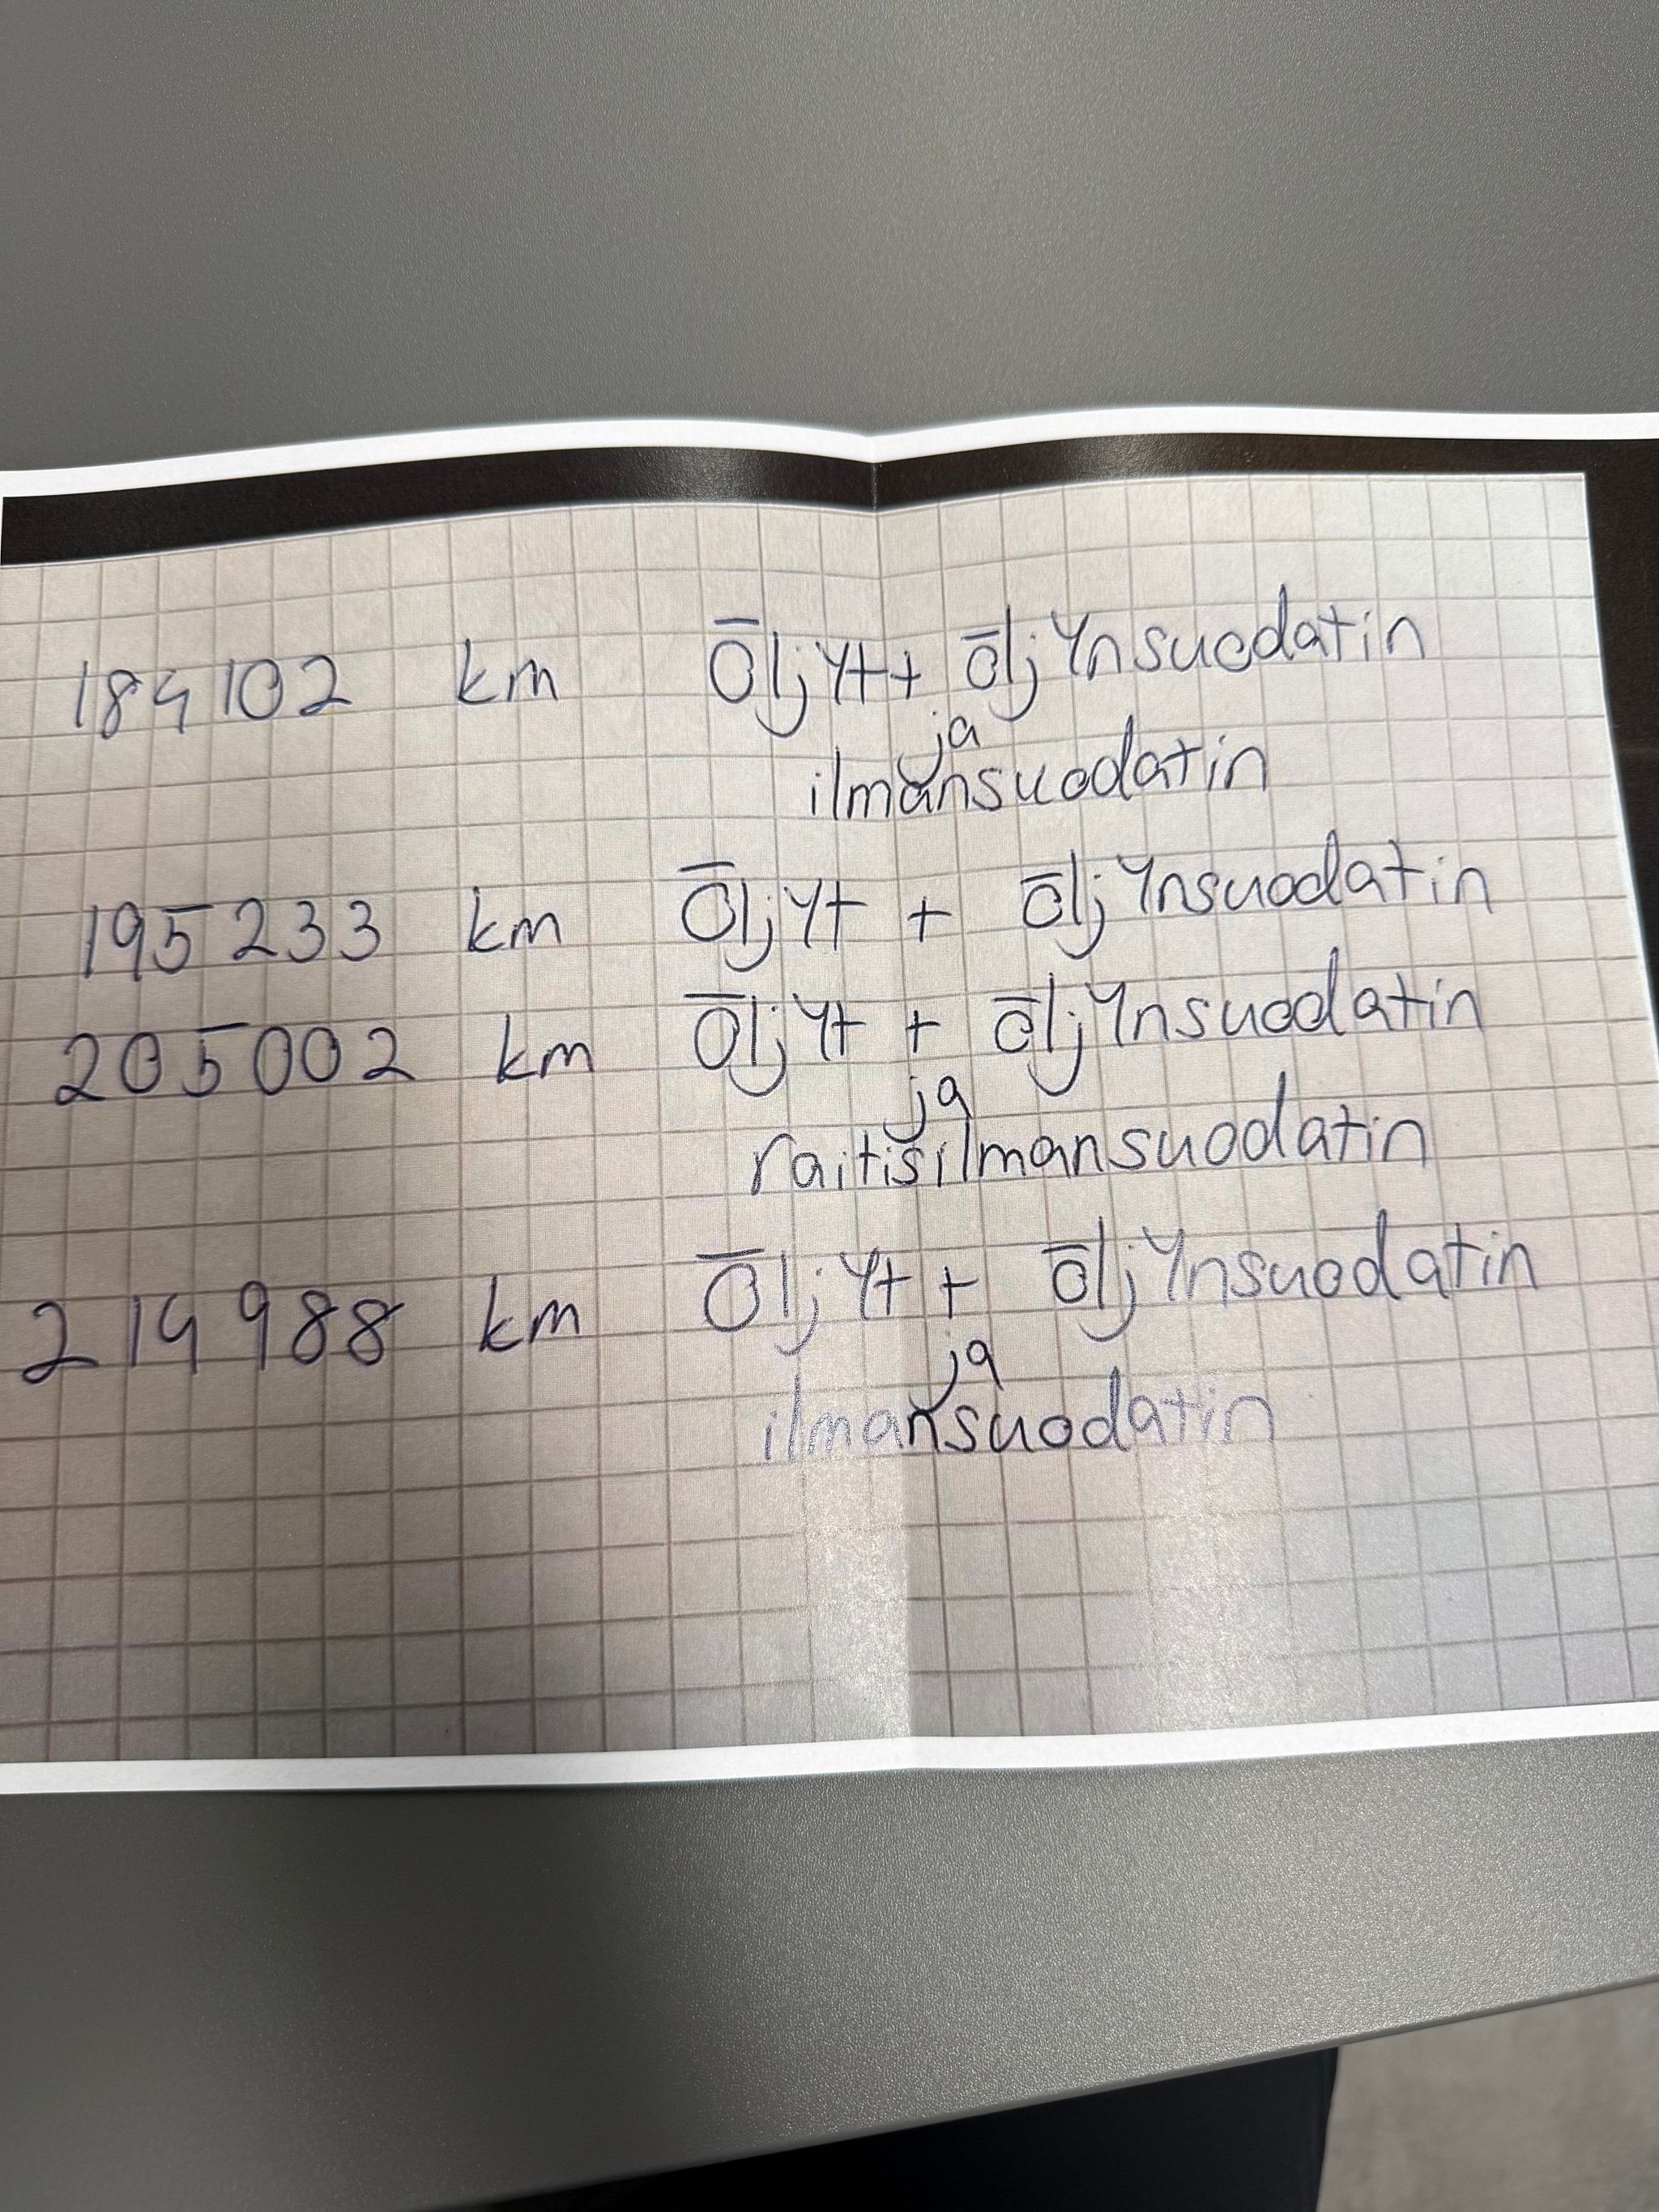 184102 km Öljyt + öljynsuodatin
ja
ilmansuodatin
195233 km Öljyt + öljynsuodatin
205002 km Öljyt + öljynsuodatin
ja
raitisilmansuodatin
214988 km Öljyt + öljynsuodatin
ja
ilmansuodatin